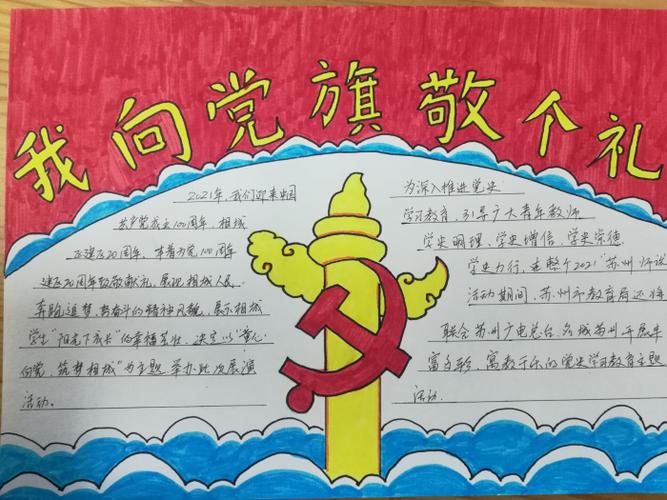 我向党旗敬个礼
2021年，我们迎来中国
共产党成立100周年，相城
区建区20周年，本着为党100周年
建区20周年致敬献礼，展现相城人民
奔跑追梦，奋斗的精神风貌，展示相城
学生“阳光下成长”的幸福生活，决定以“童心
向党，筑梦相城”为主题举办此次展演
活动。
为深入推进党史
学习教育，引导广大青年教师
学史明理，学史增信，学史崇德
学史力行，在整个2021“苏州师
活动期间，苏州市教育局还将
联合苏州广电总台，名城苏州开展丰
富多彩，寓教于乐的党史学习教育主题
活动